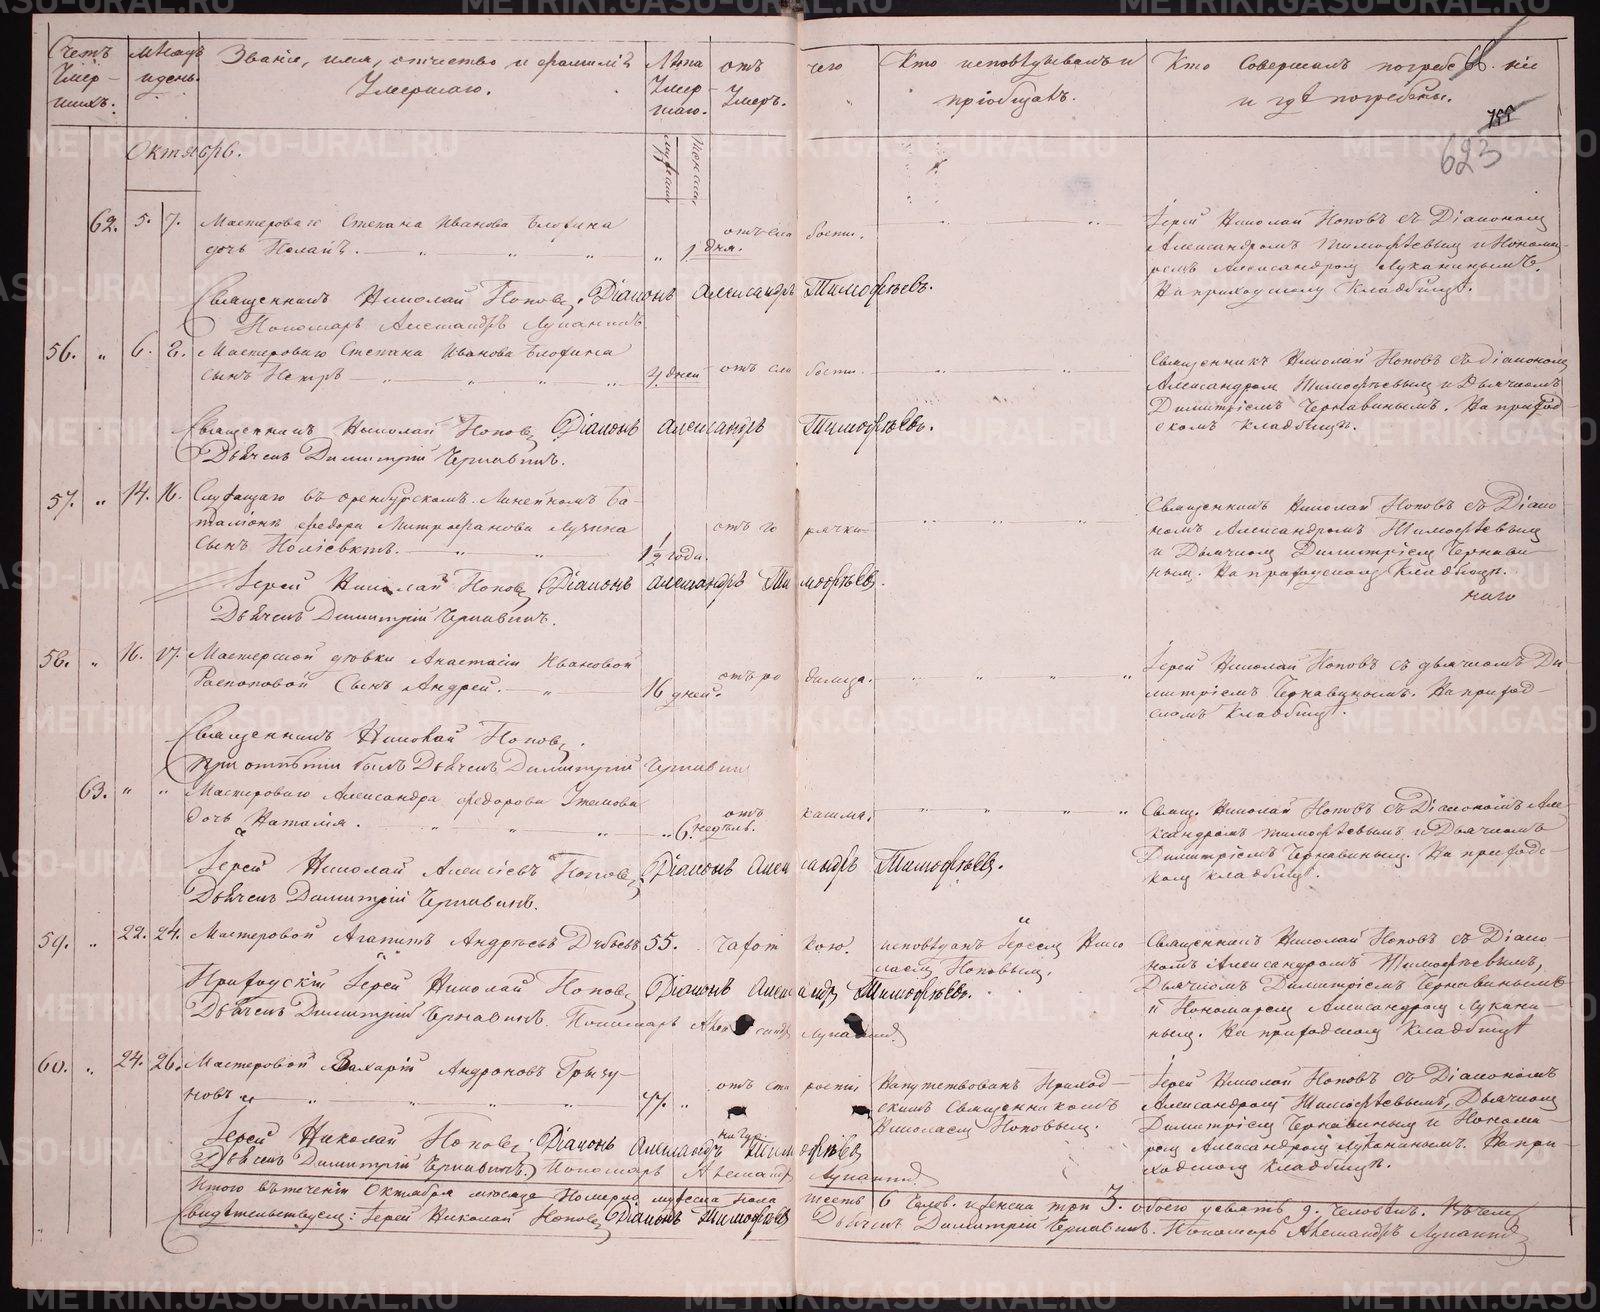 Счетъ Умер-шихъ.
Мѣсяцъ и день.
Званіе, имя, отчество и фамилія Умершаго.
Лѣта Умер-шаго.
отъ чего Умеръ.
Кто исповѣдывалъ и пріобщалъ.
Кто Совершалъ погребеніе и гдѣ погребены.
66.
623
Октябрь.
62. 5. 7. Мастероваго Степана Иванова
дочь Пелагія. 1 дня. отъ слабости.
Іерей Николай Поповъ съ Діакономъ
Александромъ Тимофѣевымъ и Понома-
ремъ Александромъ Луканинымъ.
На приходскомъ Кладбищѣ.
Священникъ Николай Поповъ. Діаконъ Александръ Тимофѣевъ.
Пономарь Александръ Луканинъ
56. " 6. 8. Мастероваго Степана Иванова
сынъ Петръ 4 дней отъ слабости.
Священникъ Николай Поповъ съ Діакономъ
Александромъ Тимофѣевымъ и Дьячкомъ
Димитріемъ Чернавинымъ. На приход-
скомъ Кладбищѣ.
Священникъ Николай Поповъ Діаконъ Александръ Тимофѣевъ.
Дьячекъ Димитрій Чернавинъ.
57. " 14. 16. Служащаго въ Оренбургскомъ Линейномъ Ба-
таліонѣ Федора Митрофанова
сынъ Поліевктъ. 1 1/2 года. отъ горячки
Священникъ Николай Поповъ съ Діако-
номъ Александромъ Тимофѣевымъ
и Дьячкомъ Димитріемъ Чернави-
нымъ. На приходскомъ Кладбищѣ.
Іерей Николай Поповъ Діаконъ Александръ Тимофѣевъ.
Дьячекъ Димитрій Чернавинъ.
58. " 16. 17. Мастерской дѣвки Анастасіи Ивановой
Распоповой Сынъ Андрей. 16 дней. отъ родимца.
Іерей Николай Поповъ съ дьячкомъ Ди-
митріемъ Чернавинымъ. На приход-
скомъ Кладбищѣ.
Священникъ Николай Поповъ.
При отпѣтіи былъ Дьячекъ Димитрій Чернавинъ
63. " " Мастероваго Александра Федорова
дочь Наталія. 6. недѣль. отъ кашля.
Свящ. Николай Поповъ съ Діакономъ Але-
ксандромъ Тимофѣевымъ и Дьячкомъ
Димитріемъ Чернавинымъ. На приход-
скомъ кладбищѣ.
Іерей Николай Алексіевъ Поповъ Діаконъ Александръ Тимофѣевъ.
Дьячекъ Димитрій Чернавинъ.
59. " 22. 24. Мастеровой Агапитъ Андреевъ 55. Чахоткою.
исповѣданъ Іереемъ Нико-
лаемъ Поповымъ.
Священникъ Николай Поповъ съ Діако-
номъ Александромъ Тимофѣевымъ,
Дьячкомъ Димитріемъ Чернавинымъ
и Пономаремъ Александромъ Лукани-
нымъ. На приходскомъ Кладбищѣ
Приходскій Іерей Николай Поповъ Діаконъ Александръ Тимофѣевъ.
Дьячекъ Димитрій Чернавинъ. Пономарь Александръ Луканинъ
60. " 24. 26. Мастеровой Захарій Андроновъ Грызу-
новъ 77. отъ старости
Напутствованъ Приход-
скимъ Священникомъ
Николаемъ Поповымъ.
Іерей Николай Поповъ съ Діакономъ
Александромъ Тимофѣевымъ, Дьячкомъ
Димитріемъ Чернавинымъ и Понома-
ремъ Александромъ Луканинымъ. На при-
ходскомъ кладбищѣ.
Іерей Николай Поповъ Діаконъ Александръ Тимофѣевъ
Дьячекъ Димитрій Чернавинъ. Пономарь Александръ Луканинъ
Итого въ теченіи Октября мѣсяца Померло мужеска пола шесть 6 Челов. и женска три 3. обоего девять 9. Человѣкъ. Въ чемъ
Свидѣтельствуемъ: Іерей Николай Поповъ Діаконъ Тимофѣевъ Дьячекъ Димитрій Чернавинъ. Пономарь Александръ Луканинъ
METRIKI.GASO-URAL.RU